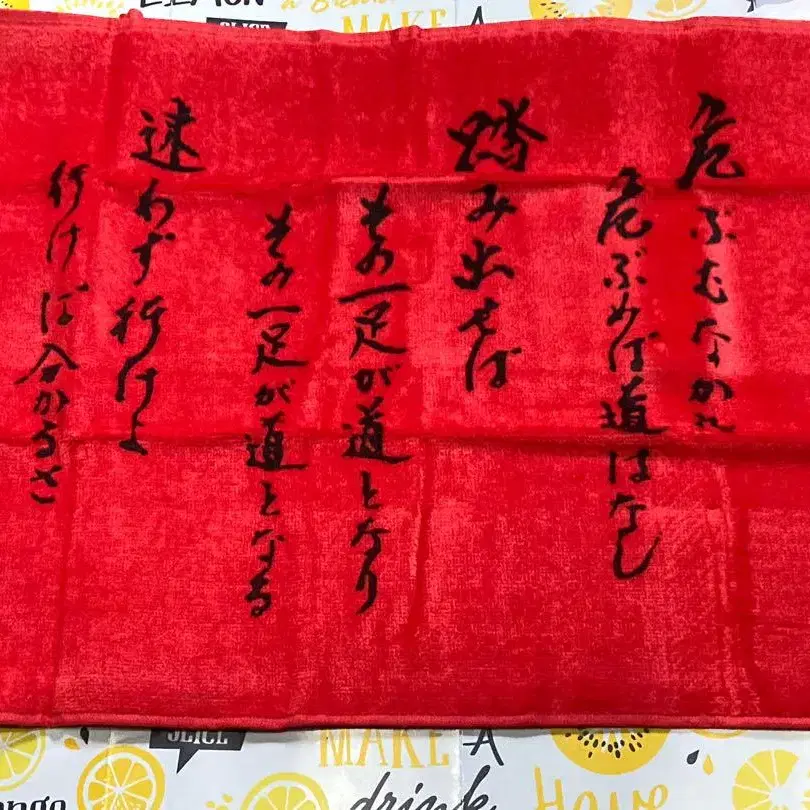 MAKE A
SLICE
危ぶむなかれ
危ぶめば道はなし
踏み出せば
その一足が道となり
その一足が道となる
迷わず行けよ
行けば分かるさ
SLICE
MAKE A
drink
Have